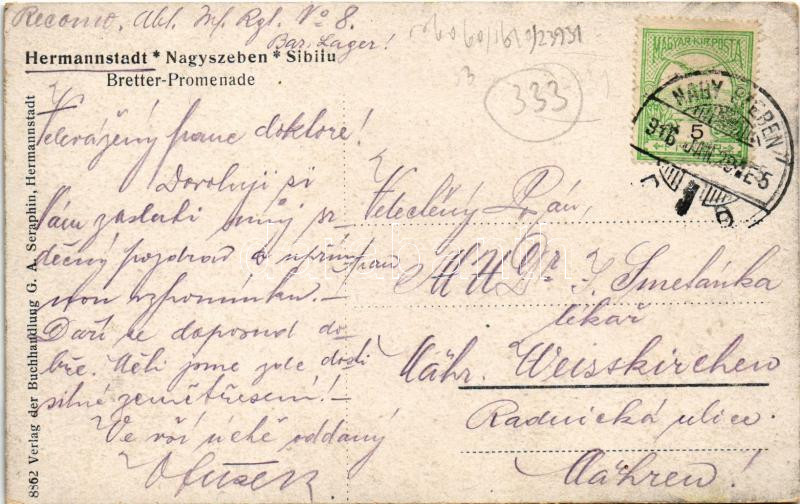 Reconv. Abt. Inf. Rgt. No 8.
Bar. Lager!
Hermannstadt * Nagyszeben * Sibiiu
Bretter-Promenade
333
MAGYAR KIR. POSTA
NAGYSZEBEN
916 JAN
5
8862 Verlag der Buchhandlung G. A. Seraphin, Hermannstadt
Velevážený pane doktore!
Dovoluji si
Vám zaslati můj sr
dečný pozdrav a upřím
nou vzpomínku.–
Daří se doposud do-
bře. Měli jsme zde dosti
silné zemětřesení!–
Ve vší úctě oddaný
Velectěný Pán,
pan MUDr. J. Smetánka
lékař
Mähr. Weisskirchen
Radnická ulice.
Mähren!